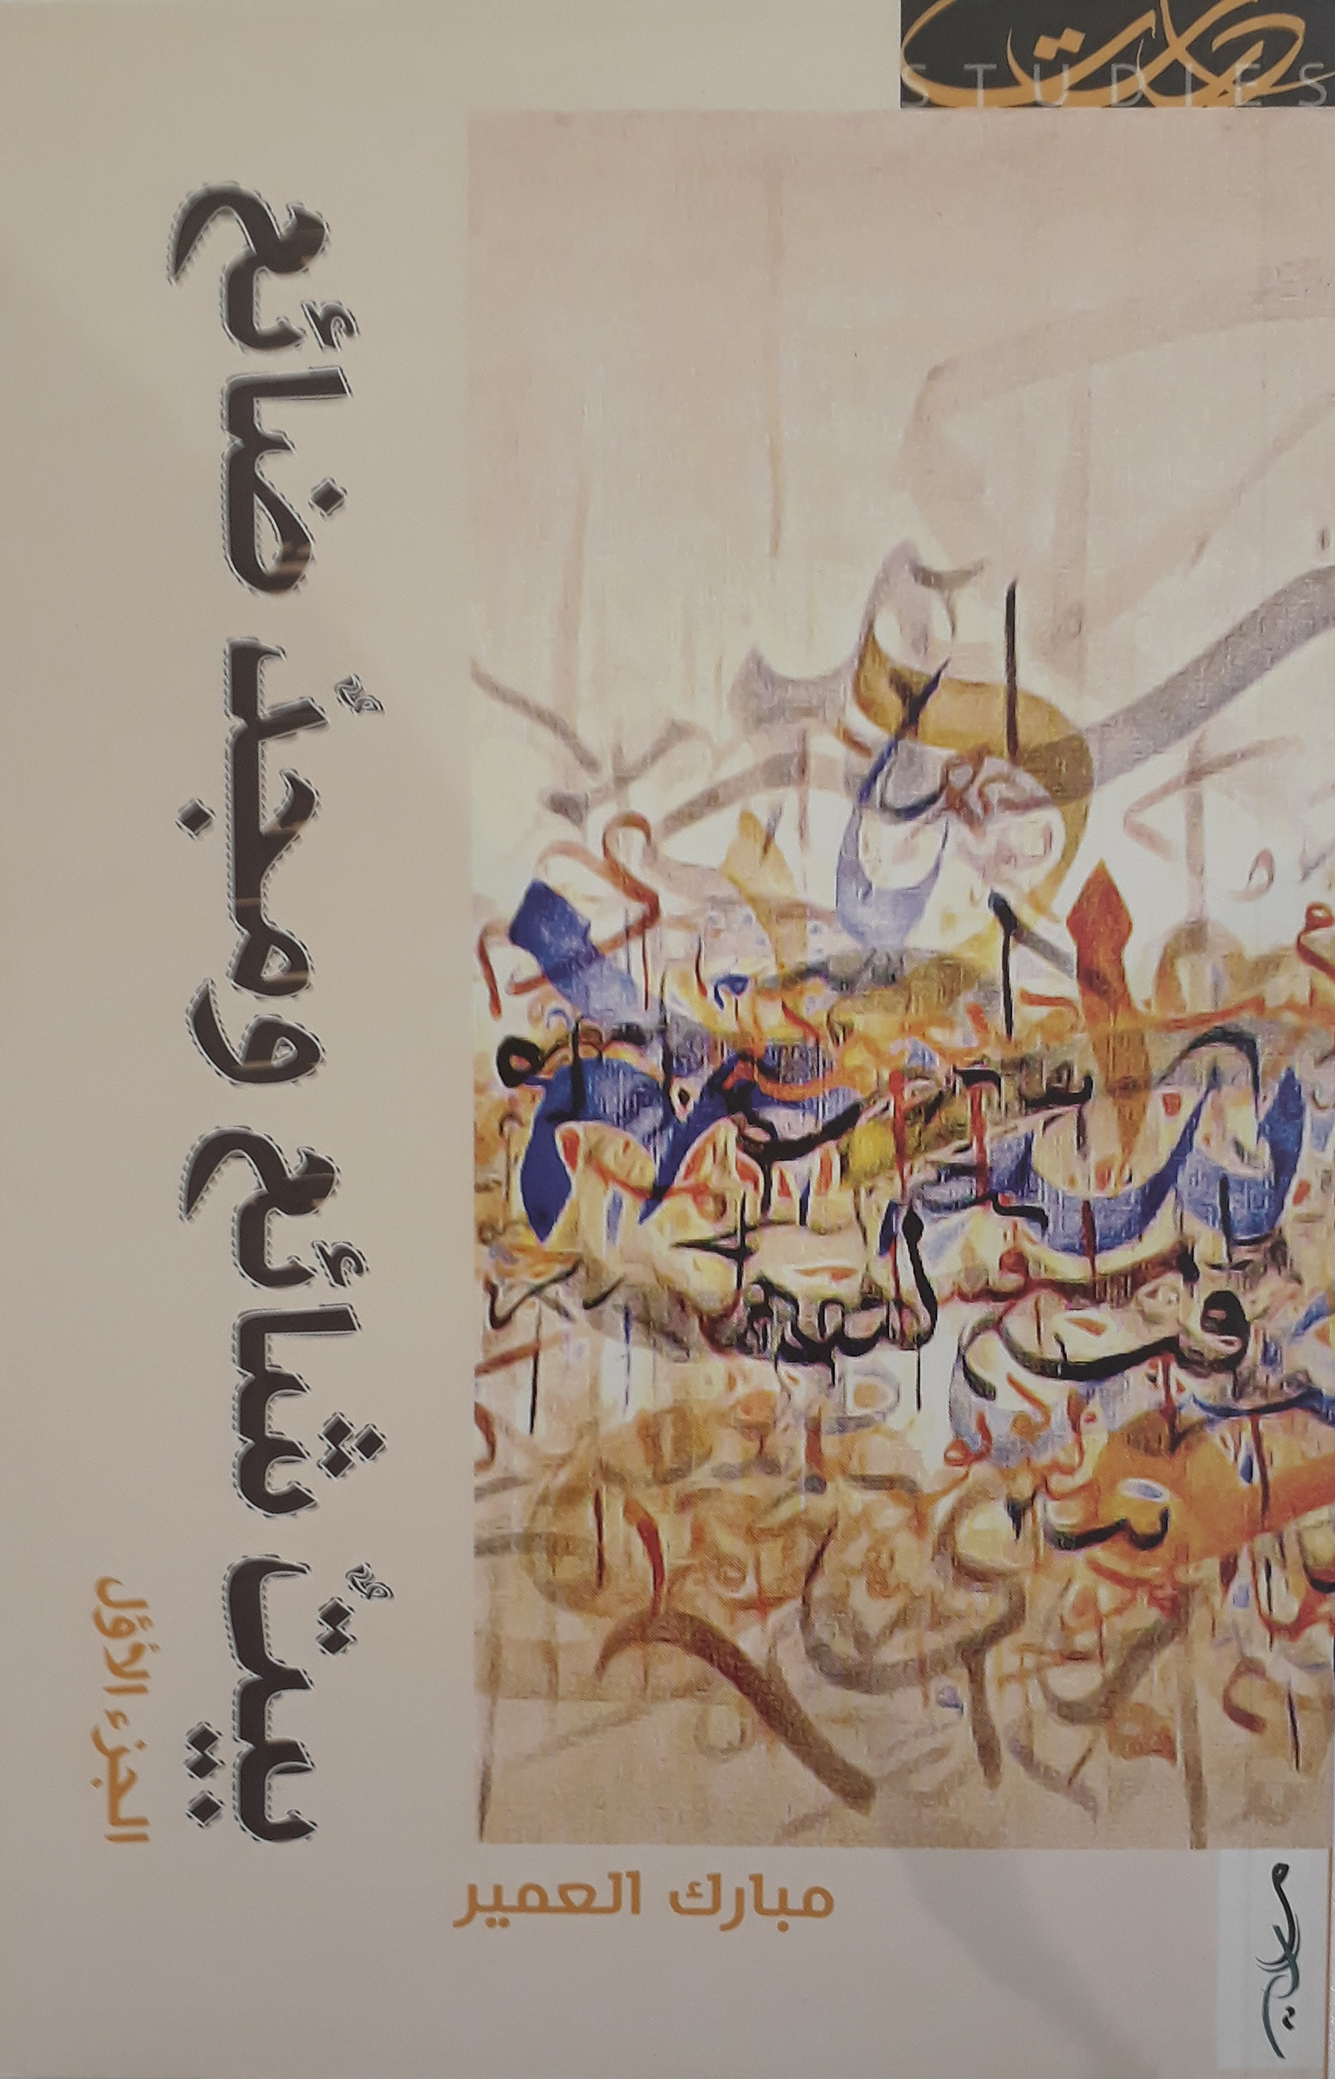 دراسات
STUDIES
بيتٌ شائع ومجدٌ ضائع
الجزء الأول
مبارك العمير